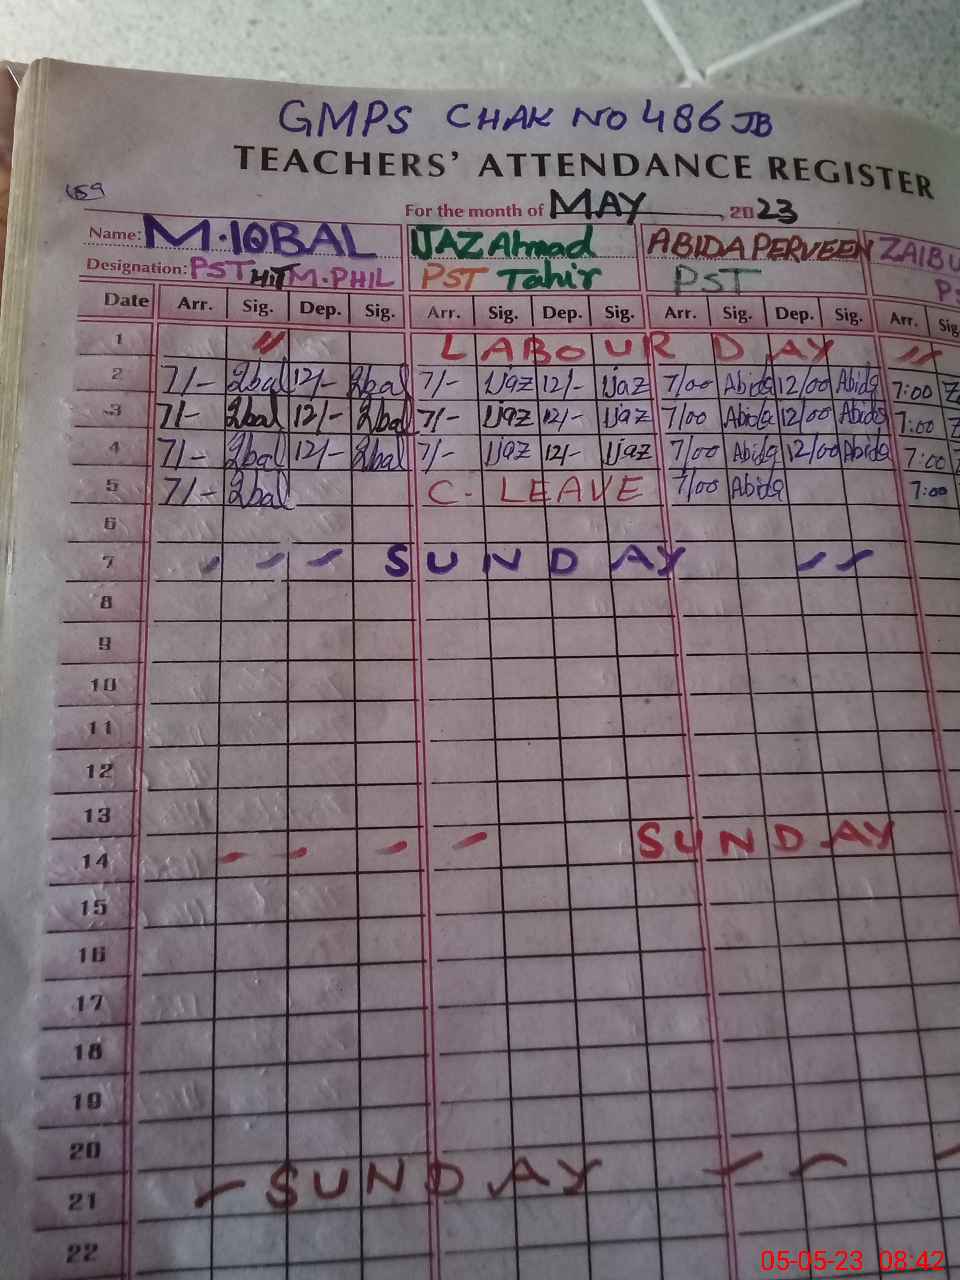 GMPS CHAK NO 486 JB
TEACHERS' ATTENDANCE REGISTER
For the month of MAY, 2023
Name: M.IQBAL IJAZ Ahmad ABIDA PERVEEN
Designation: PST HIT M.PHIL PST Tahir PST
Date Arr. Sig. Dep. Sig. Arr. Sig. Dep. Sig. Arr. Sig. Dep. Sig. Arr.
1 " LABOUR DAY "
2 7/- Iqbal 12/- Iqbal 7/- Ijaz 12/- Ijaz 7/00 Abida 12/00 Abida 7:00
3 7/- Iqbal 12/- Iqbal 7/- Ijaz 12/- Ijaz 7/00 Abida 12/00 Abida 7:00
4 7/- Iqbal 12/- Iqbal 7/- Ijaz 12/- Ijaz 7/00 Abida 12/00 Abida 7:00
5 7/- Iqbal C. LEAVE 7/00 Abida 7:00
6
7 - - - SUNDAY - -
8
9
10
11
12
13
14 - - - - SUNDAY
15
16
17
18
19
20
21 - SUNDAY - - -
22
05-05-23 08:42